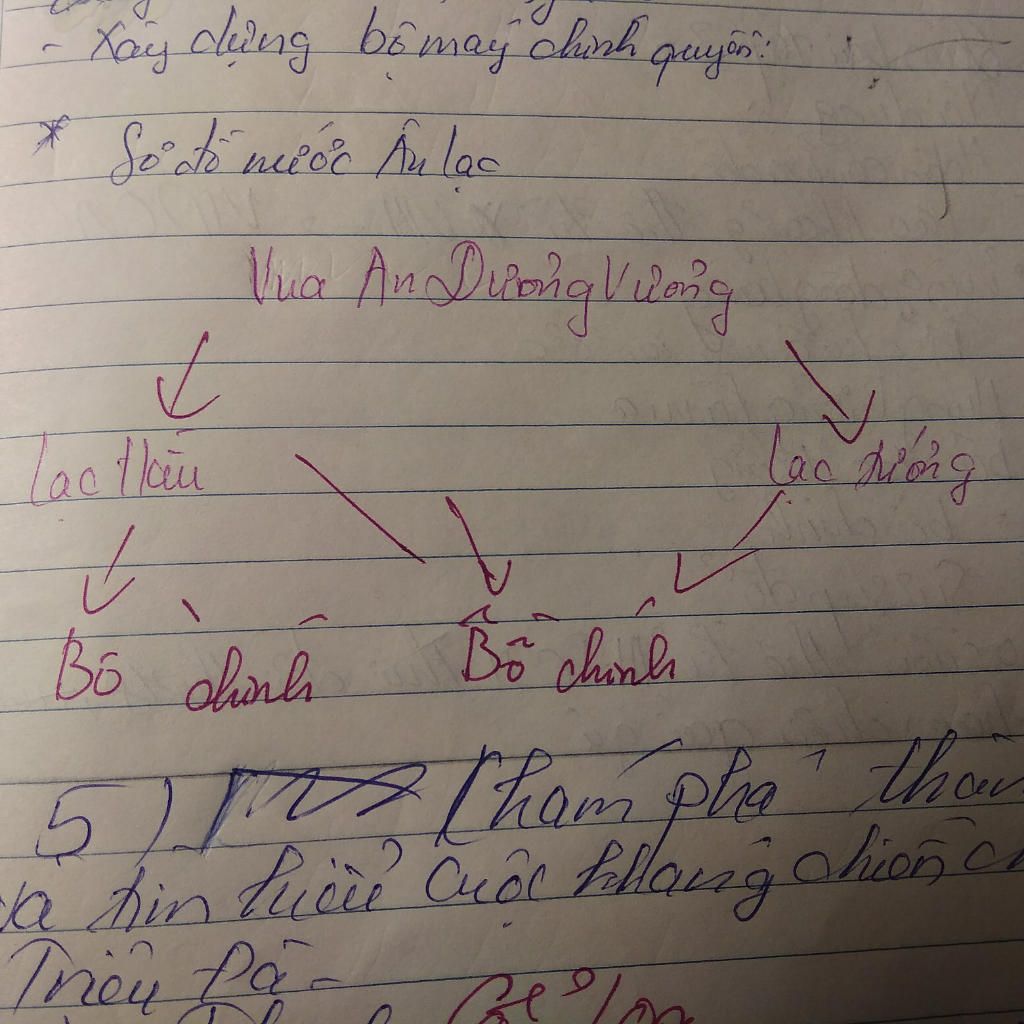 - Xây dựng bộ máy chính quyền:
* Sơ đồ nước Âu lạc
Vua An Dương Vương
Lạc Hầu Lạc tướng
Bồ chính Bồ chính
5) khám phá thàn
và tìm hiểu cuộc kháng chiến ch
Triệu Đà -